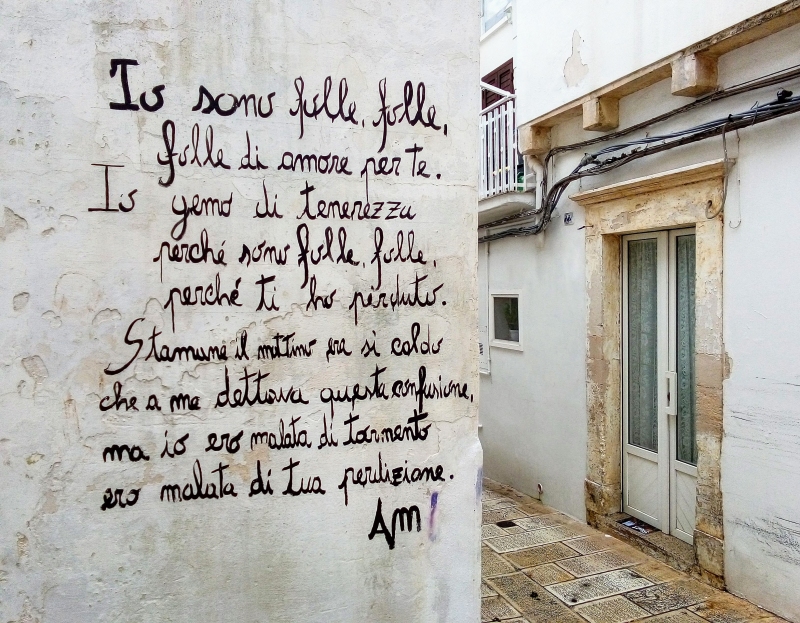 Io sono folle, folle,
folle di amore per te.
Io gemo di tenerezza
perché sono folle, folle,
perché ti ho perduto.
Stamane il mattino era si caldo
che a me dettava questa confusione,
ma io ero malata di tormento
ero malata di tua perdizione.
AM